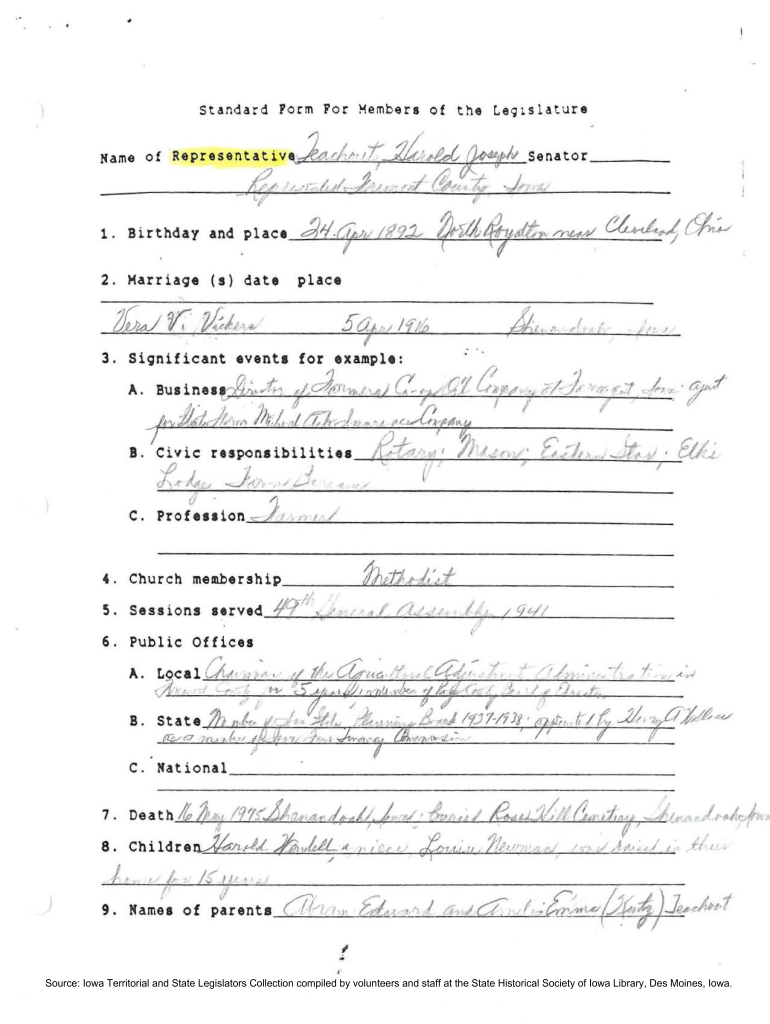 Standard Form For Members of the Legislature
Name of Representative Teachout, Harold Joseph Senator
Represented Fremont County, Iowa
1. Birthday and place 24 Apr 1892 North Royalton near Cleveland, Ohio
2. Marriage (s) date place
Vera V. Vickers 5 Apr 1916 Shenandoah, Iowa
3. Significant events for example:
A. Business Director of Farmers Co-op Oil Company at Farragut, Iowa agent
for State Farm Mutual Auto Insurance Company
B. Civic responsibilities Rotary; Mason; Eastern Star; Elk's
Lodge Farm Bureau
C. Profession Farmer
4. Church membership Methodist
5. Sessions served 49th General Assembly 1941
6. Public Offices
A. Local Chairman of the Agricultural Adjustment Administration in
County for 5 years; member of Board of
B. State Member of Iowa State Planning Board 1937-1938; appointed by Henry A Wallace
as a member of Iowa Farm Tenancy Commission
C. National
7. Death 16 May 1975 Shenandoah, Iowa; buried Rose Hill Cemetery, Shenandoah, Iowa
8. Children Harold Wendell a niece, Louise Newman, was raised in their
home for 15 years
9. Names of parents Abram Edward and Emma (Kurtz) Teachout
Source: Iowa Territorial and State Legislators Collection compiled by volunteers and staff at the State Historical Society of Iowa Library, Des Moines, Iowa.